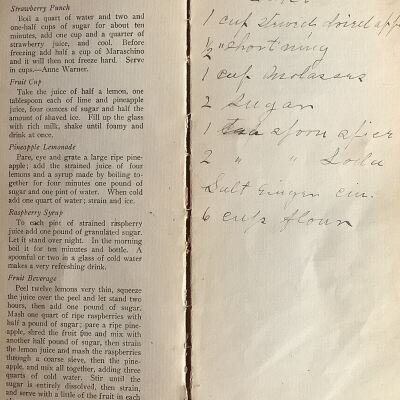 Strawberry Punch
Boil a quart of water and two and
one-half cups of sugar for about ten
minutes, add one cup and a quarter of
strawberry juice, and cool. Before
freezing add half a cup of Maraschino
and it will then not freeze hard. Serve
in cups.—Anne Warner.
Fruit Cup
Take the juice of half a lemon, one
tablespoon each of lime and pineapple
juice, four ounces of sugar and half the
amount of shaved ice. Fill up the glass
with rich milk, shake until foamy and
drink at once.
Pineapple Lemonade
Pare, eye and grate a large ripe pine-
apple; add the strained juice of four
lemons and a syrup made by boiling to-
gether for four minutes one pound of
sugar and one pint of water. When cold
add one quart of water; strain and ice.
Raspberry Syrup
To each pint of strained raspberry
juice add one pound of granulated sugar.
Let it stand over night. In the morning
boil it for ten minutes and bottle. A
spoonful or two in a glass of cold water
makes a very refreshing drink.
Fruit Beverage
Peel twelve lemons very thin, squeeze
the juice over the peel and let stand two
hours, then add one pound of sugar.
Mash one quart of ripe raspberries with
half a pound of sugar; pare a ripe pine-
apple, shred the fruit fine and mix with
another half pound of sugar, then strain
the lemon juice and mash the raspberries
through a coarse sieve, then the pine-
apple, and mix all together, adding three
quarts of cold water. Stir until the
sugar is entirely dissolved, then strain,
and serve with a little of the fruit in each
1 cup stewed dried app
1/2 " shortning
1 cup molasses
2 Sugar
1 spoon
2 " " Soda
Salt Ginger cin.
6 cups flour